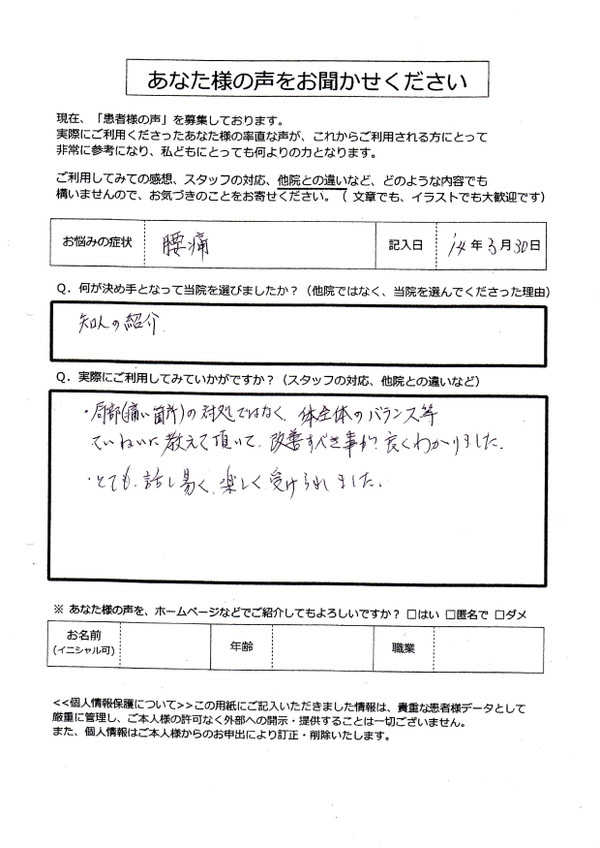 あなた様の声をお聞かせください
現在、「患者様の声」を募集しております。
実際にご利用くださったあなた様の率直な声が、これからご利用される方にとって
非常に参考になり、私どもにとっても何よりの力となります。
ご利用してみての感想、スタッフの対応、他院との違いなど、どのような内容でも
構いませんので、お気づきのことをお寄せください。（ 文章でも、イラストでも大歓迎です）
お悩みの症状 腰痛 記入日 14年3月30日
Q．何が決め手となって当院を選びましたか？（他院ではなく、当院を選んでくださった理由）
知人の紹介
Q．実際にご利用してみていかがですか？（スタッフの対応、他院との違いなど）
・局部(痛い箇所)の対処ではなく、体全体のバランス等
ていねいに教えて頂いて、改善すべき事が良くわかりました。
・とても、話し易く、楽しく受けられました。
※ あなた様の声を、ホームページなどでご紹介してもよろしいですか？ □はい □匿名で □ダメ
お名前 年齢 職業
（イニシャル可）
<<個人情報保護について>>この用紙にご記入いただきました情報は、貴重な患者様データとして
厳重に管理し、ご本人様の許可なく外部への開示・提供することは一切ございません。
また、個人情報はご本人様からのお申出により訂正・削除いたします。